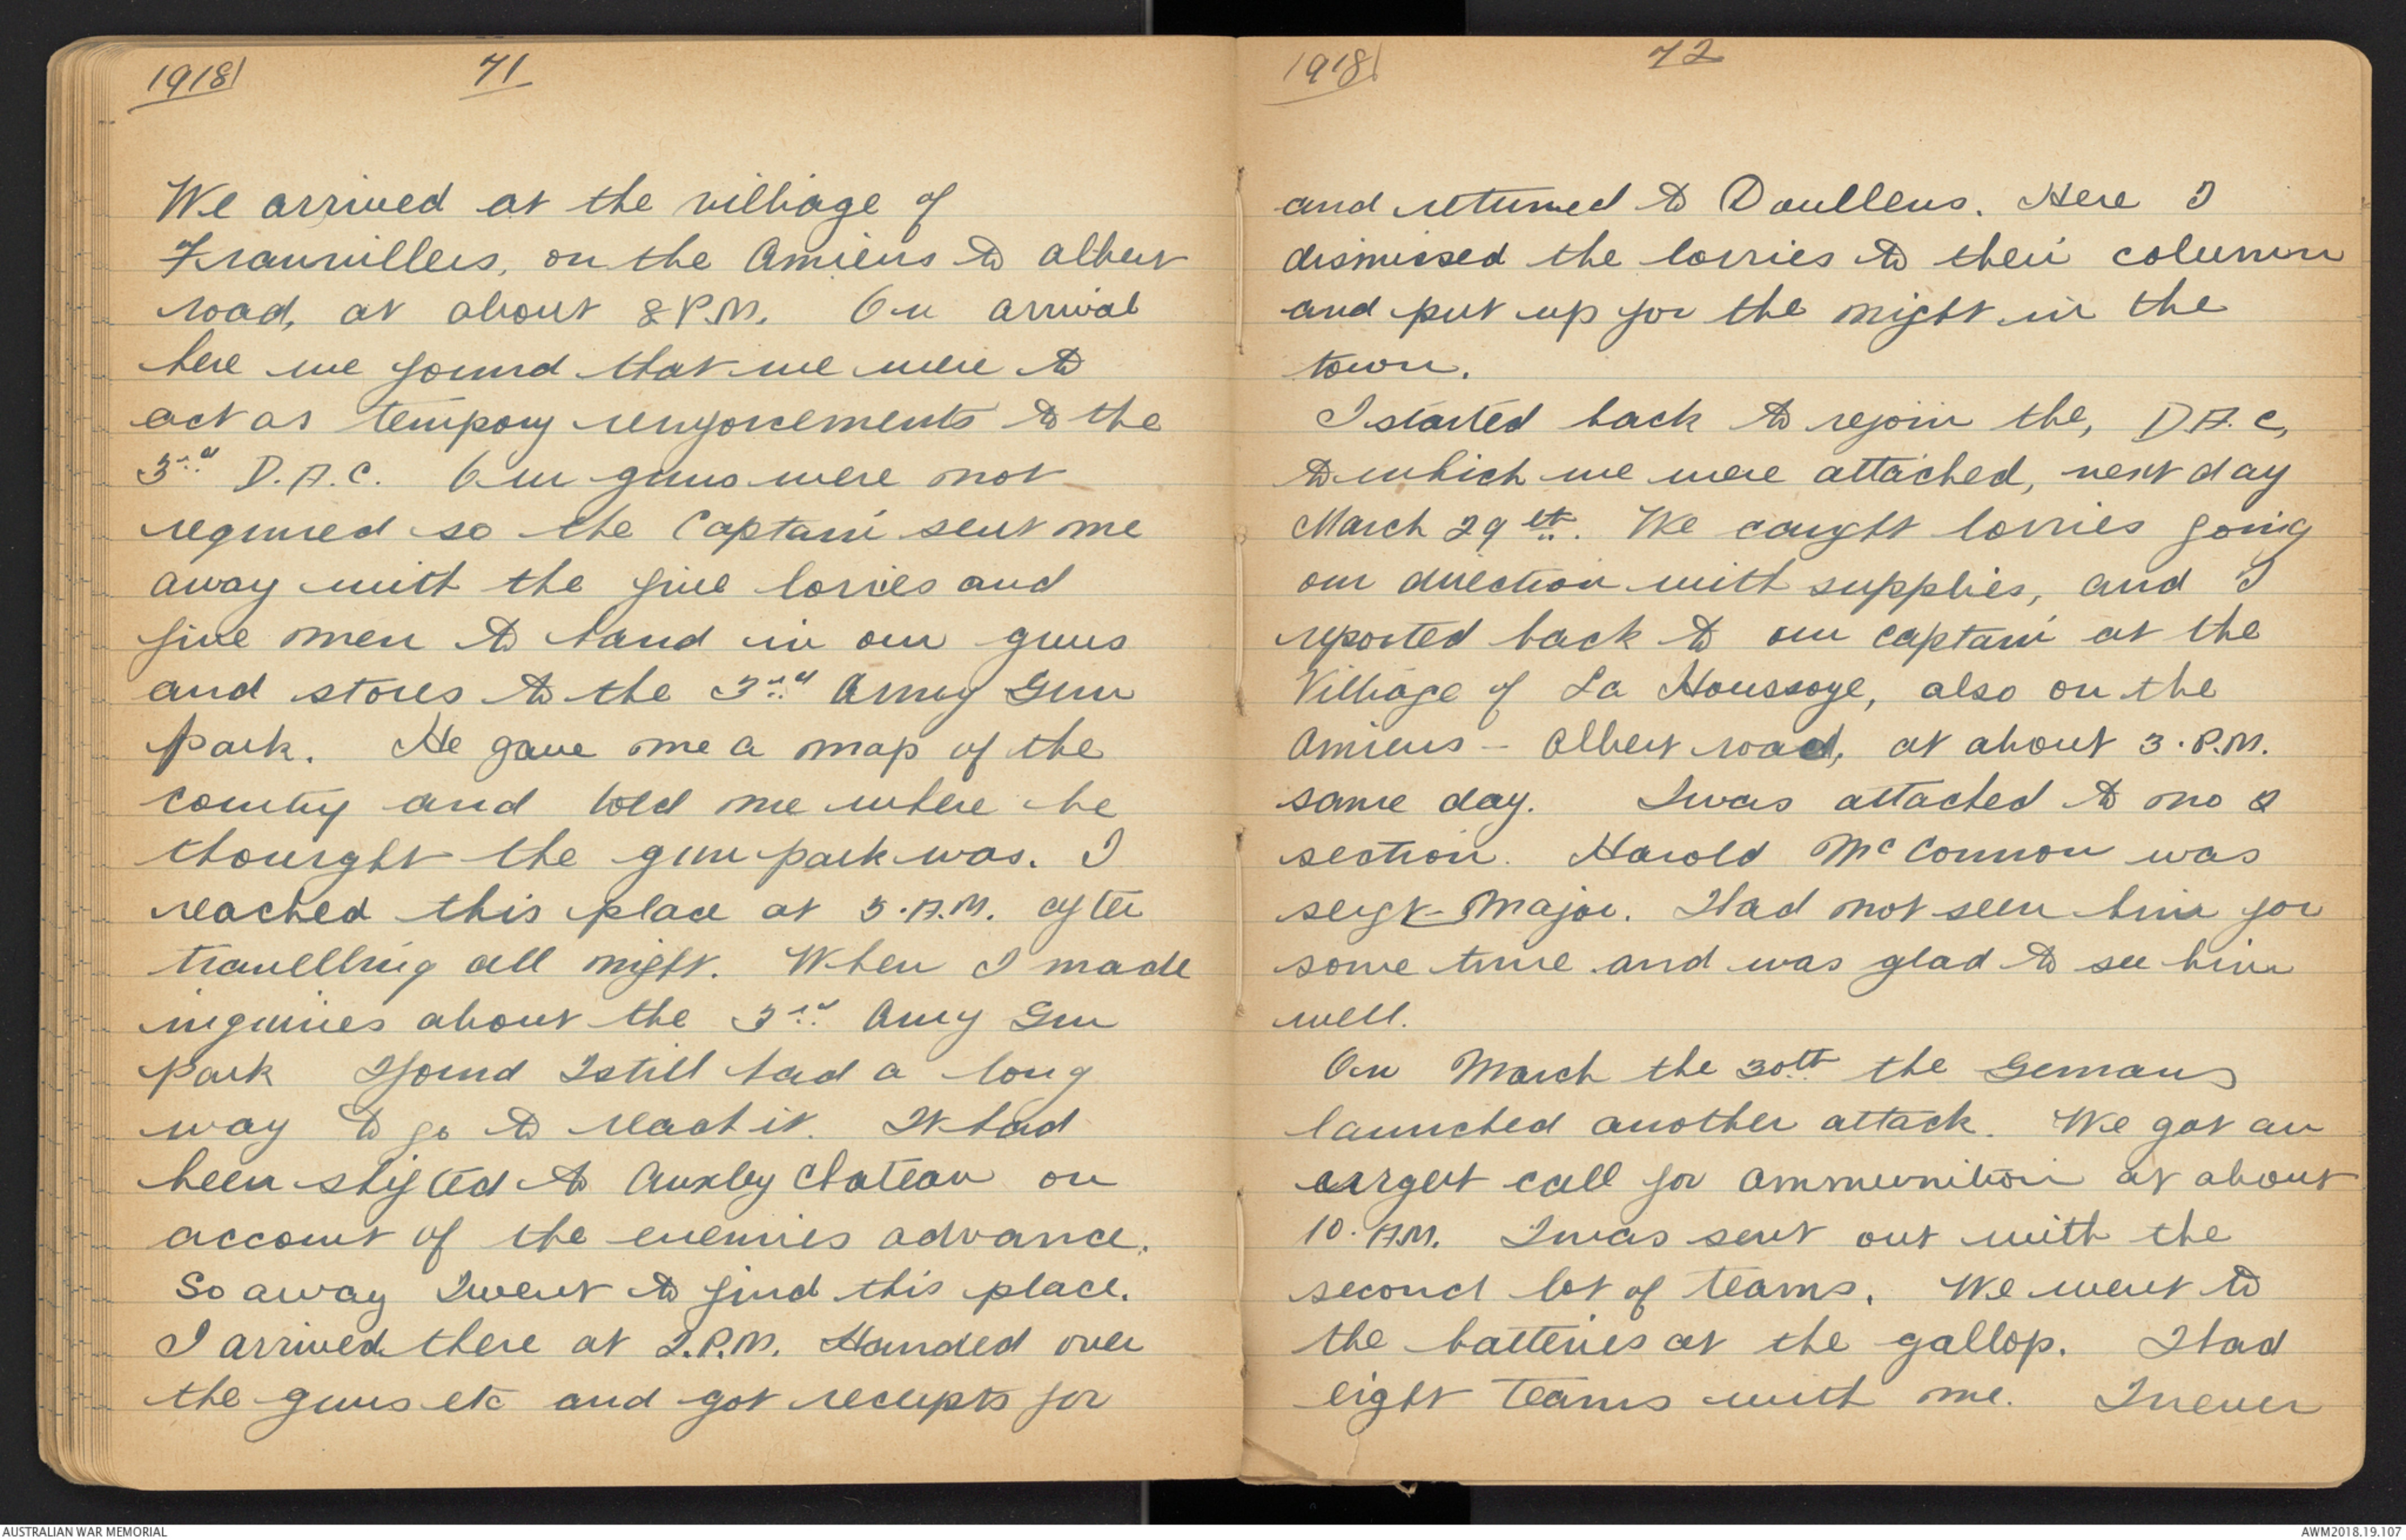 1918 71
We arrived at the villiage of
Franvillers, on the Amiens to Albert
road, at about 8 P.M. On arrival
here we found that we were to
act as tempory reinforcements to the
3rd D.A.C. Our guns were not
required so the Captain sent me
away with the five lorries and
five men to hand in our guns
and stores to the 3rd Army Gun
Park. He gave me a map of the
country and told me where he
thought the gun park was. I
reached this place at 5.A.M. after
travelling all night. When I made
inquiries about the 3rd Army Gun
Park I found I still had a long
way to go to reach it. It had
been shifted to Auxley Chateau on
account of the enemies advance.
So away I went to find this place.
I arrived there at 2.P.M. Handed over
the guns etc and got receipts for
1918 72
and returned to Doullens. Here I
dismissed the lorries to their column
and put up for the night in the
town.
I started back to rejoin the, D.A.C,
to which we were attached, next day
March 29th. We caught lorries going
our direction with supplies, and I
reported back to our captain at the
Villiage of La Houssoye, also on the
Amiens - Albert road, at about 3.P.M.
same day. I was attached to no
section. Harold McConnon was
sergt-Major. I had not seen him for
some time and was glad to see him
well.
On March the 30th the Germans
launched another attack. We got an
urgent call for ammunition at about
10.A.M. I was sent out with the
second lot of teams. We went to
the batteries at the gallop. I had
eight teams with me. I never
AUSTRALIAN WAR MEMORIAL
AWM2018.19.107